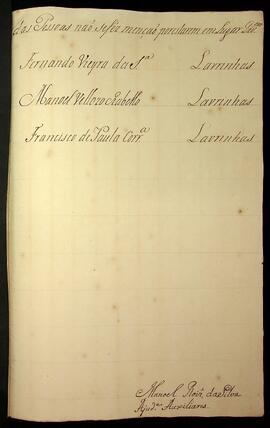 das Pessoas naõ se fes mençaõ por estarem em Lugar
Fernando Vieyra da S.ª Lavrinhas
Manoel Vellozo Rabello Lavrinhas
Francisco de Paula Corr.ª Lavrinhas
Manoel Roiz da Silva
Ajud.e Auxiliares